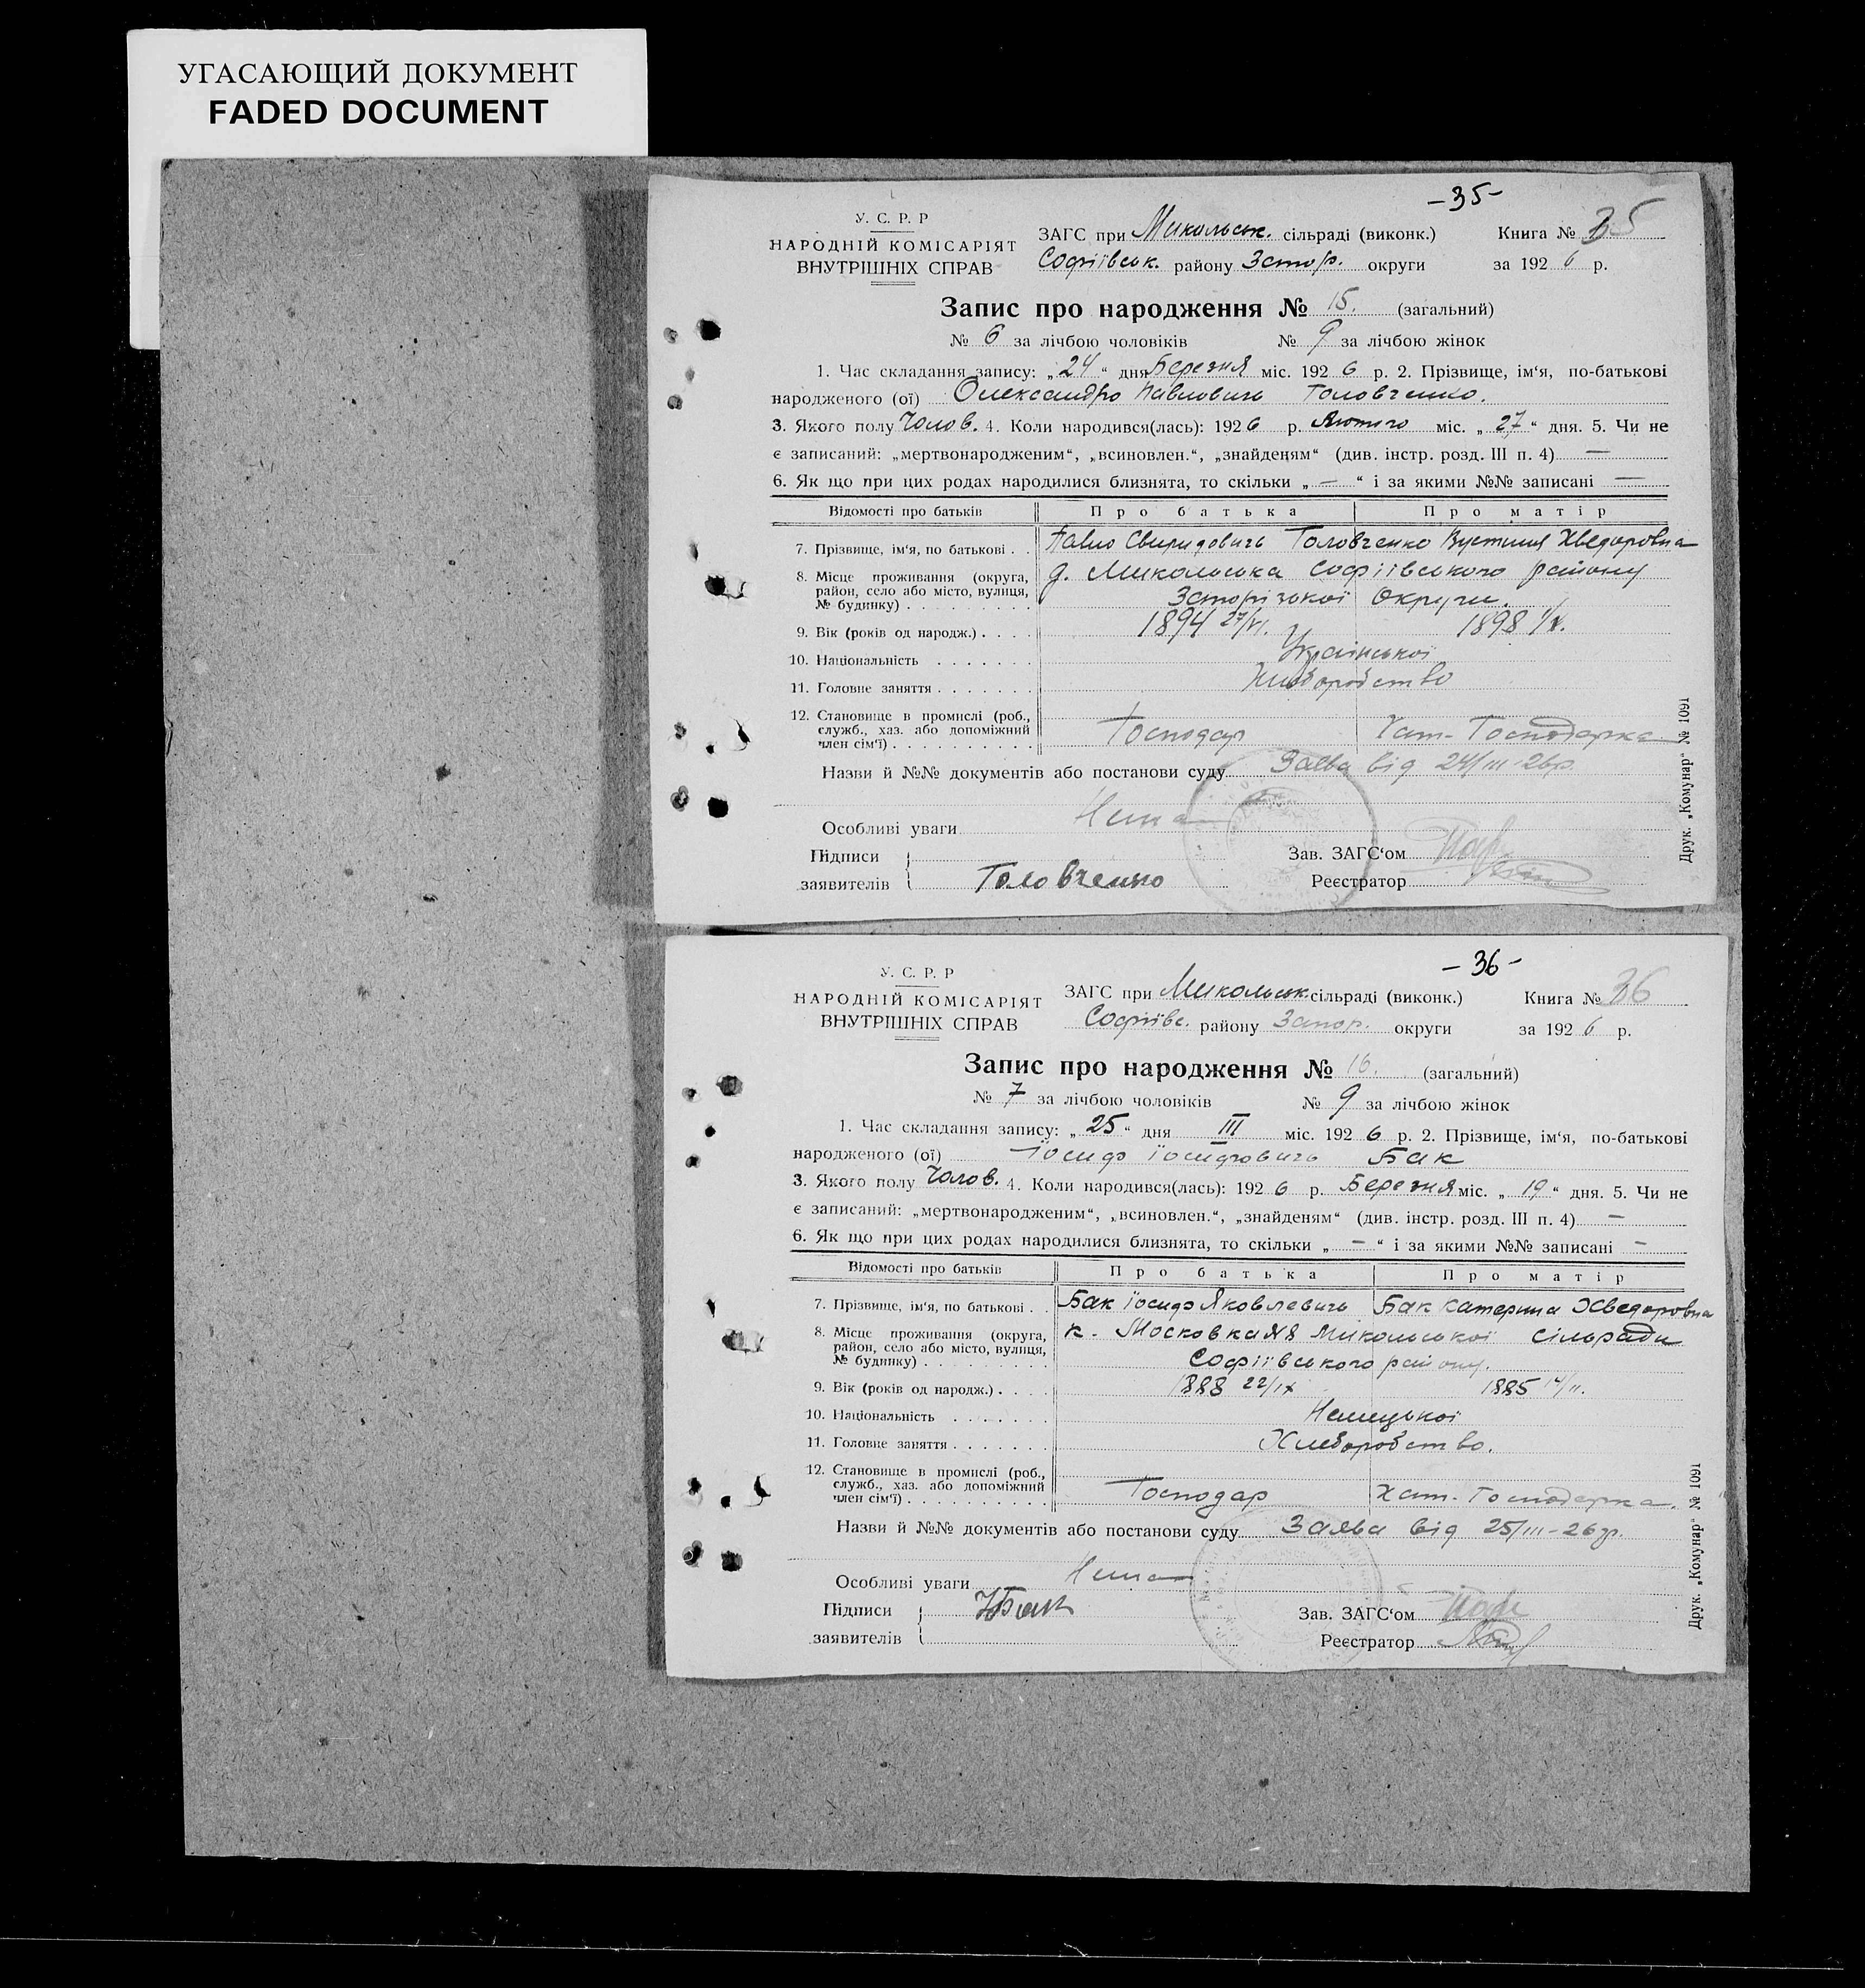 УГАСАЮЩИЙ ДОКУМЕНТ
FADED DOCUMENT
-35-
У. С. Р. Р
НАРОДНІЙ КОМІСАРІЯТ
ВНУТРІШНІХ СПРАВ
ЗАГС при Микольськ. сільраді (виконк.) Книга № 35
Софіївськ. району Запор. округи за 1926 р.
Запис про народження № 15. (загальний)
№ 6 за лічбою чоловіків № 9 за лічбою жінок
1. Час складання запису: „24“ дня Березня міс. 1926 р. 2. Прізвище, ім‘я, по-батькові
народженого (ої) Олександро Павловичь Головченко.
3. Якого полу Чолов. 4. Коли народився(лась): 1926 р. Лютого міс. „27“ дня. 5. Чи не
є записаний: „мертвонародженим“, „всиновлен.“, „знайденям“ (див. інстр. розд. III п. 4) —
6. Як що при цих родах народилися близнята, то скільки „—“ і за якими №№ записані —
Відомості про батьків Про батька Про матір
7. Прізвище, ім‘я, по батькові . . Павло Свиридовичь Головченко Вустиня Хведоровна
8. Місце проживання (округа, район, село або місто, вулиця, № будинку) . . . . . . . . . д. Микольська Софіївського району
Запорізької Округи.
9. Вік (років од народж.) . . . . 1894 27/VI. 1898
10. Національність . . . . . . . Української
11. Головне заняття . . . . . . . Хліборобство
12. Становище в промислі (роб., служб., хаз. або допоміжний член сім‘ї) . . . . . . . . . . Господар Хат-Господарка
Назви й №№ документів або постанови суду Заява від 24/III-26р.
Особливі уваги Нема
Підписи
заявителів Головченко
Зав. ЗАГС‘ом
Реєстратор
Друк. „Комунар“ № 1091
-36-
У. С. Р. Р
НАРОДНІЙ КОМІСАРІЯТ
ВНУТРІШНІХ СПРАВ
ЗАГС при Микольськ. сільраді (виконк.) Книга № 36
Софіївс. району Запор. округи за 1926 р.
Запис про народження № 16. (загальний)
№ 7 за лічбою чоловіків № 9 за лічбою жінок
1. Час складання запису: „25“ дня III міс. 1926 р. 2. Прізвище, ім‘я, по-батькові
народженого (ої) Їосиф Їосифовичь Бак
3. Якого полу Чолов. 4. Коли народився(лась): 1926 р. Березня міс. „19“ дня. 5. Чи не
є записаний: „мертвонародженим“, „всиновлен.“, „знайденям“ (див. інстр. розд. III п. 4) —
6. Як що при цих родах народилися близнята, то скільки „—“ і за якими №№ записані —
Відомості про батьків Про батька Про матір
7. Прізвище, ім‘я, по батькові . . Бак Їосиф Яковлевичь Бак Катерина Хведоровна
8. Місце проживання (округа, район, село або місто, вулиця, № будинку) . . . . . . . . . к. Микольської сільради
Софіївського району.
9. Вік (років од народж.) . . . . 1888 22/IX 1885 14/II.
10. Національність . . . . . . . Немецької
11. Головне заняття . . . . . . . Хлеборобство.
12. Становище в промислі (роб., служб., хаз. або допоміжний член сім‘ї) . . . . . . . . . . Господар Хат-Господарка.
Назви й №№ документів або постанови суду Заява від 25/III-26р.
Особливі уваги Нема
Підписи Бак
заявителів
Зав. ЗАГС‘ом
Реєстратор
Друк. „Комунар“ № 1091